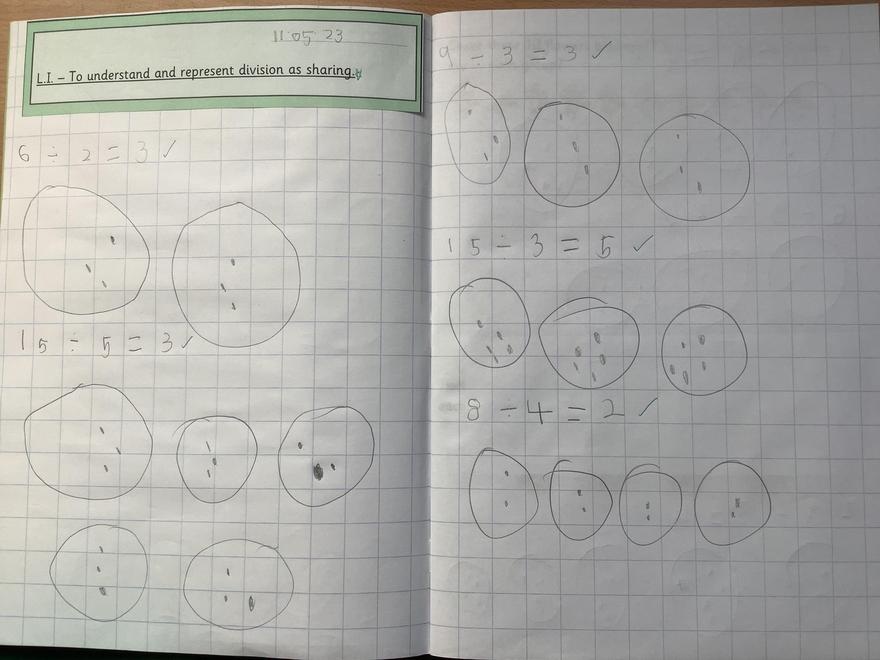 11.05 23
L.I. – To understand and represent division as sharing.
6 ÷ 2 = 3 ✓
15 ÷ 5 = 3 ✓
9 ÷ 3 = 3 ✓
15 ÷ 3 = 5 ✓
8 ÷ 4 = 2 ✓